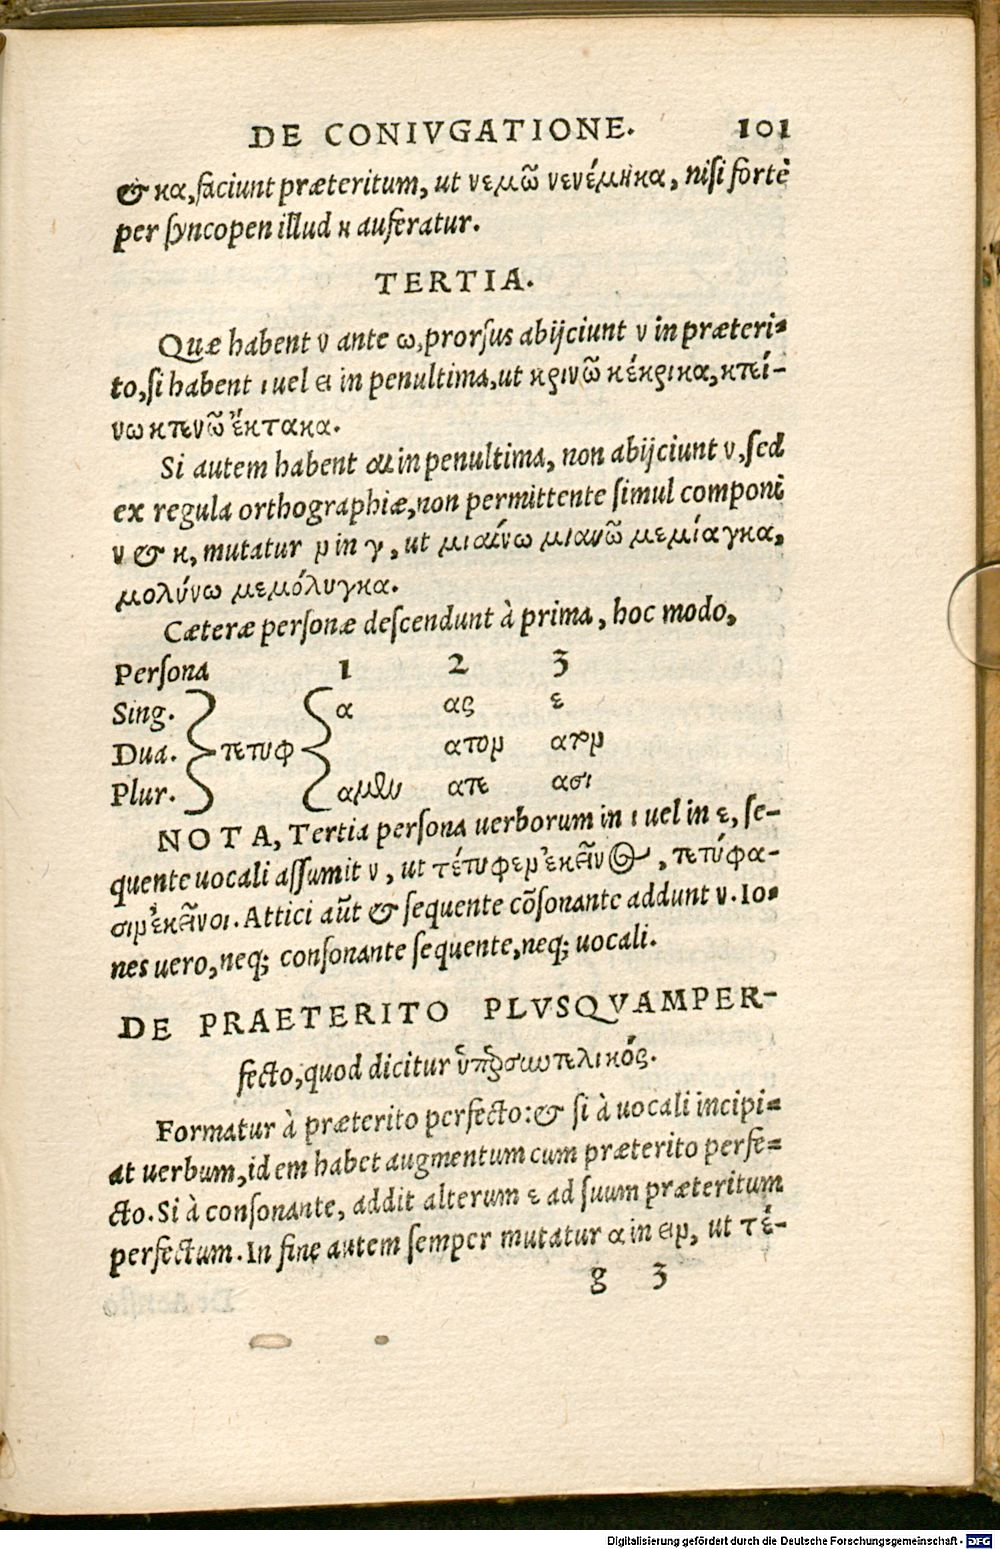 DE CONIVGATIONE. 101
& κα, faciunt præteritum, ut νεμῶ νενέμηκα, nisi fortè
per syncopen illud η auferatur.
TERTIA.
Quæ habent ν ante ω, prorsus abijciunt ν in præteri-
to, si habent ι uel ει in penultima, ut κρινῶ κέκρικα, κτεί-
νω κτενῶ ἔκτακα.
Si autem habent αι in penultima, non abijciunt ν, sed
ex regula orthographiæ, non permittente simul componi
ν & κ, mutatur ν in γ, ut μιαίνω μιανῶ μεμίαγκα,
μολύνω μεμόλυγκα.
Cæteræ personæ descendunt à prima, hoc modo,
Persona 1 2 3
Sing. α ας ε
Dua. τετυφ ατον ατον
Plur. αμεν ατε ασι
NOTA, Tertia persona uerborum in ι uel in ε, se-
quente uocali assumit ν, ut τέτυφεν ἐκεῖνος, τετύφα-
σιν ἐκεῖνοι. Attici aũt & sequente cõsonante addunt ν. Io-
nes uero, neq; consonante sequente, neq; uocali.
DE PRAETERITO PLVSQVAMPER-
fecto, quod dicitur ὑπερσυντελικός.
Formatur à præterito perfecto: & si à uocali incipi-
at uerbum, idem habet augmentum cum præterito perfe-
cto. Si à consonante, addit alterum ε ad suum præteritum
perfectum. In fine autem semper mutatur α in ειν, ut τέ-
g 3
Digitalisierung gefördert durch die Deutsche Forschungsgemeinschaft - DFG